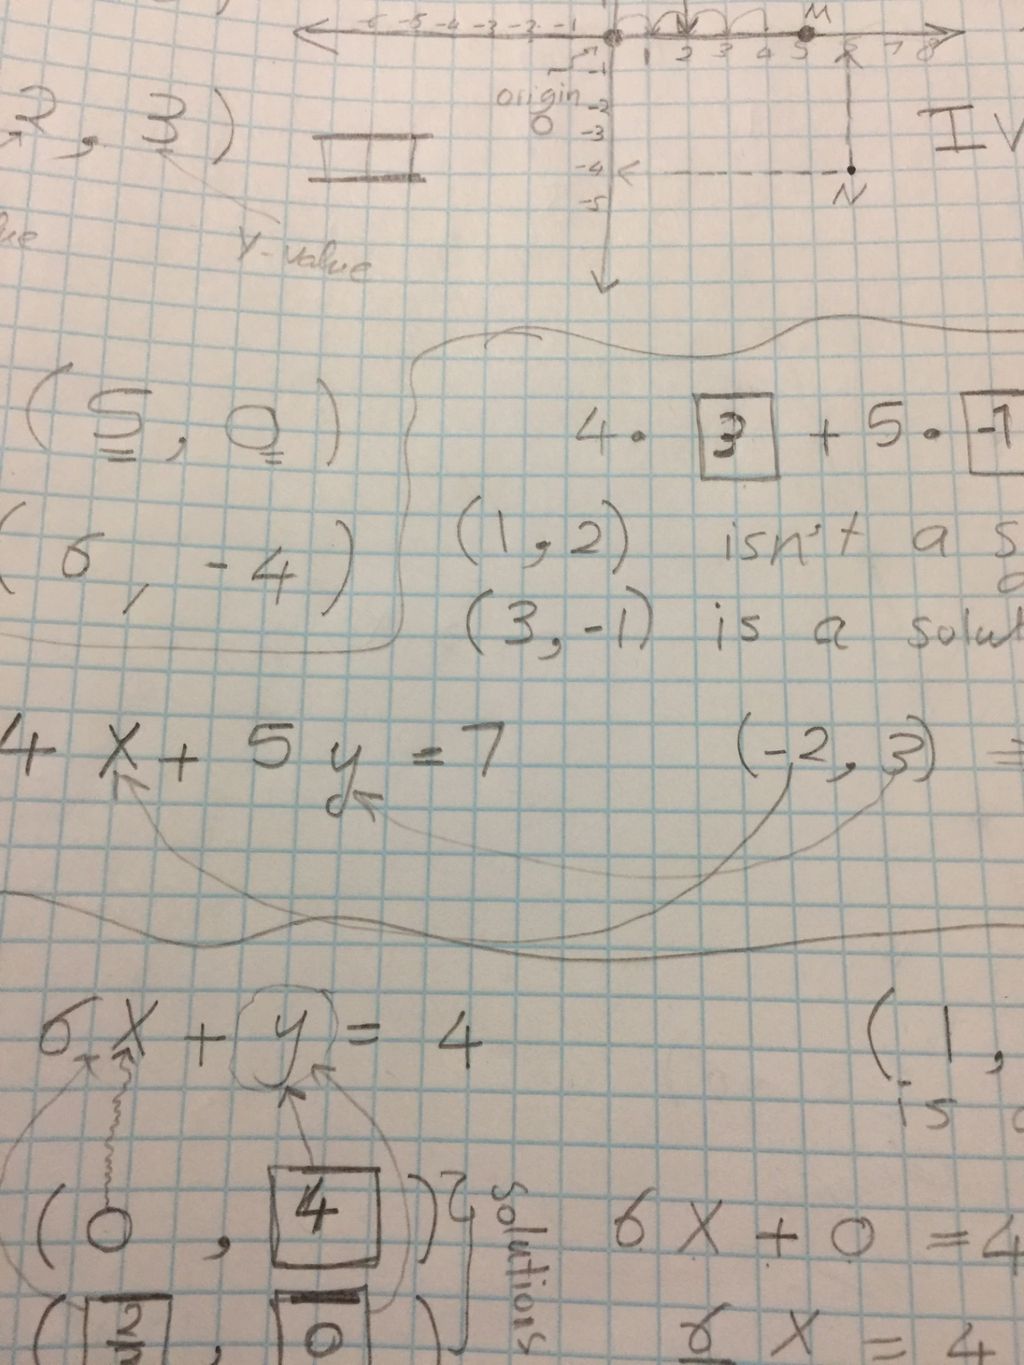 -6 -5 -4 -3 -2 -1 1 2 3 4 5 6 7 8
M
-1
origin
O
-2
-3
-4
-5
N
2, 3)
III
IV
Y-value
(5, 0)
4 · 3 + 5 · -1
(6, -4)
(1, 2) isn't a s
(3, -1) is a solut
4x + 5y = 7 (-2, 3) =
6x + y = 4 (1,
is a
(0, 4)
solutions
6x + 0 = 4
(2/3, 0)
6x = 4